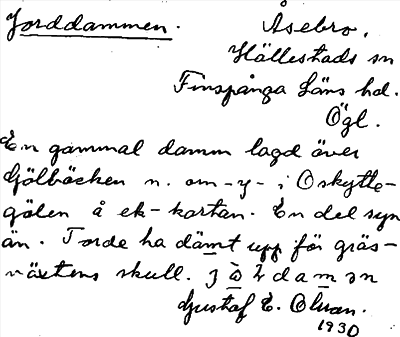 Jorddammen.
Åsebro,
Hällestads sn
Finspånga Läns hd.
Ögl.
En gammal damm lagd över
Gölbäcken n. om -y- i Oskytte-
gölen å ek-kartan. En del syn
än. Torde ha dämt upp för gräs-
växtens skull.
Gustaf E.
1930